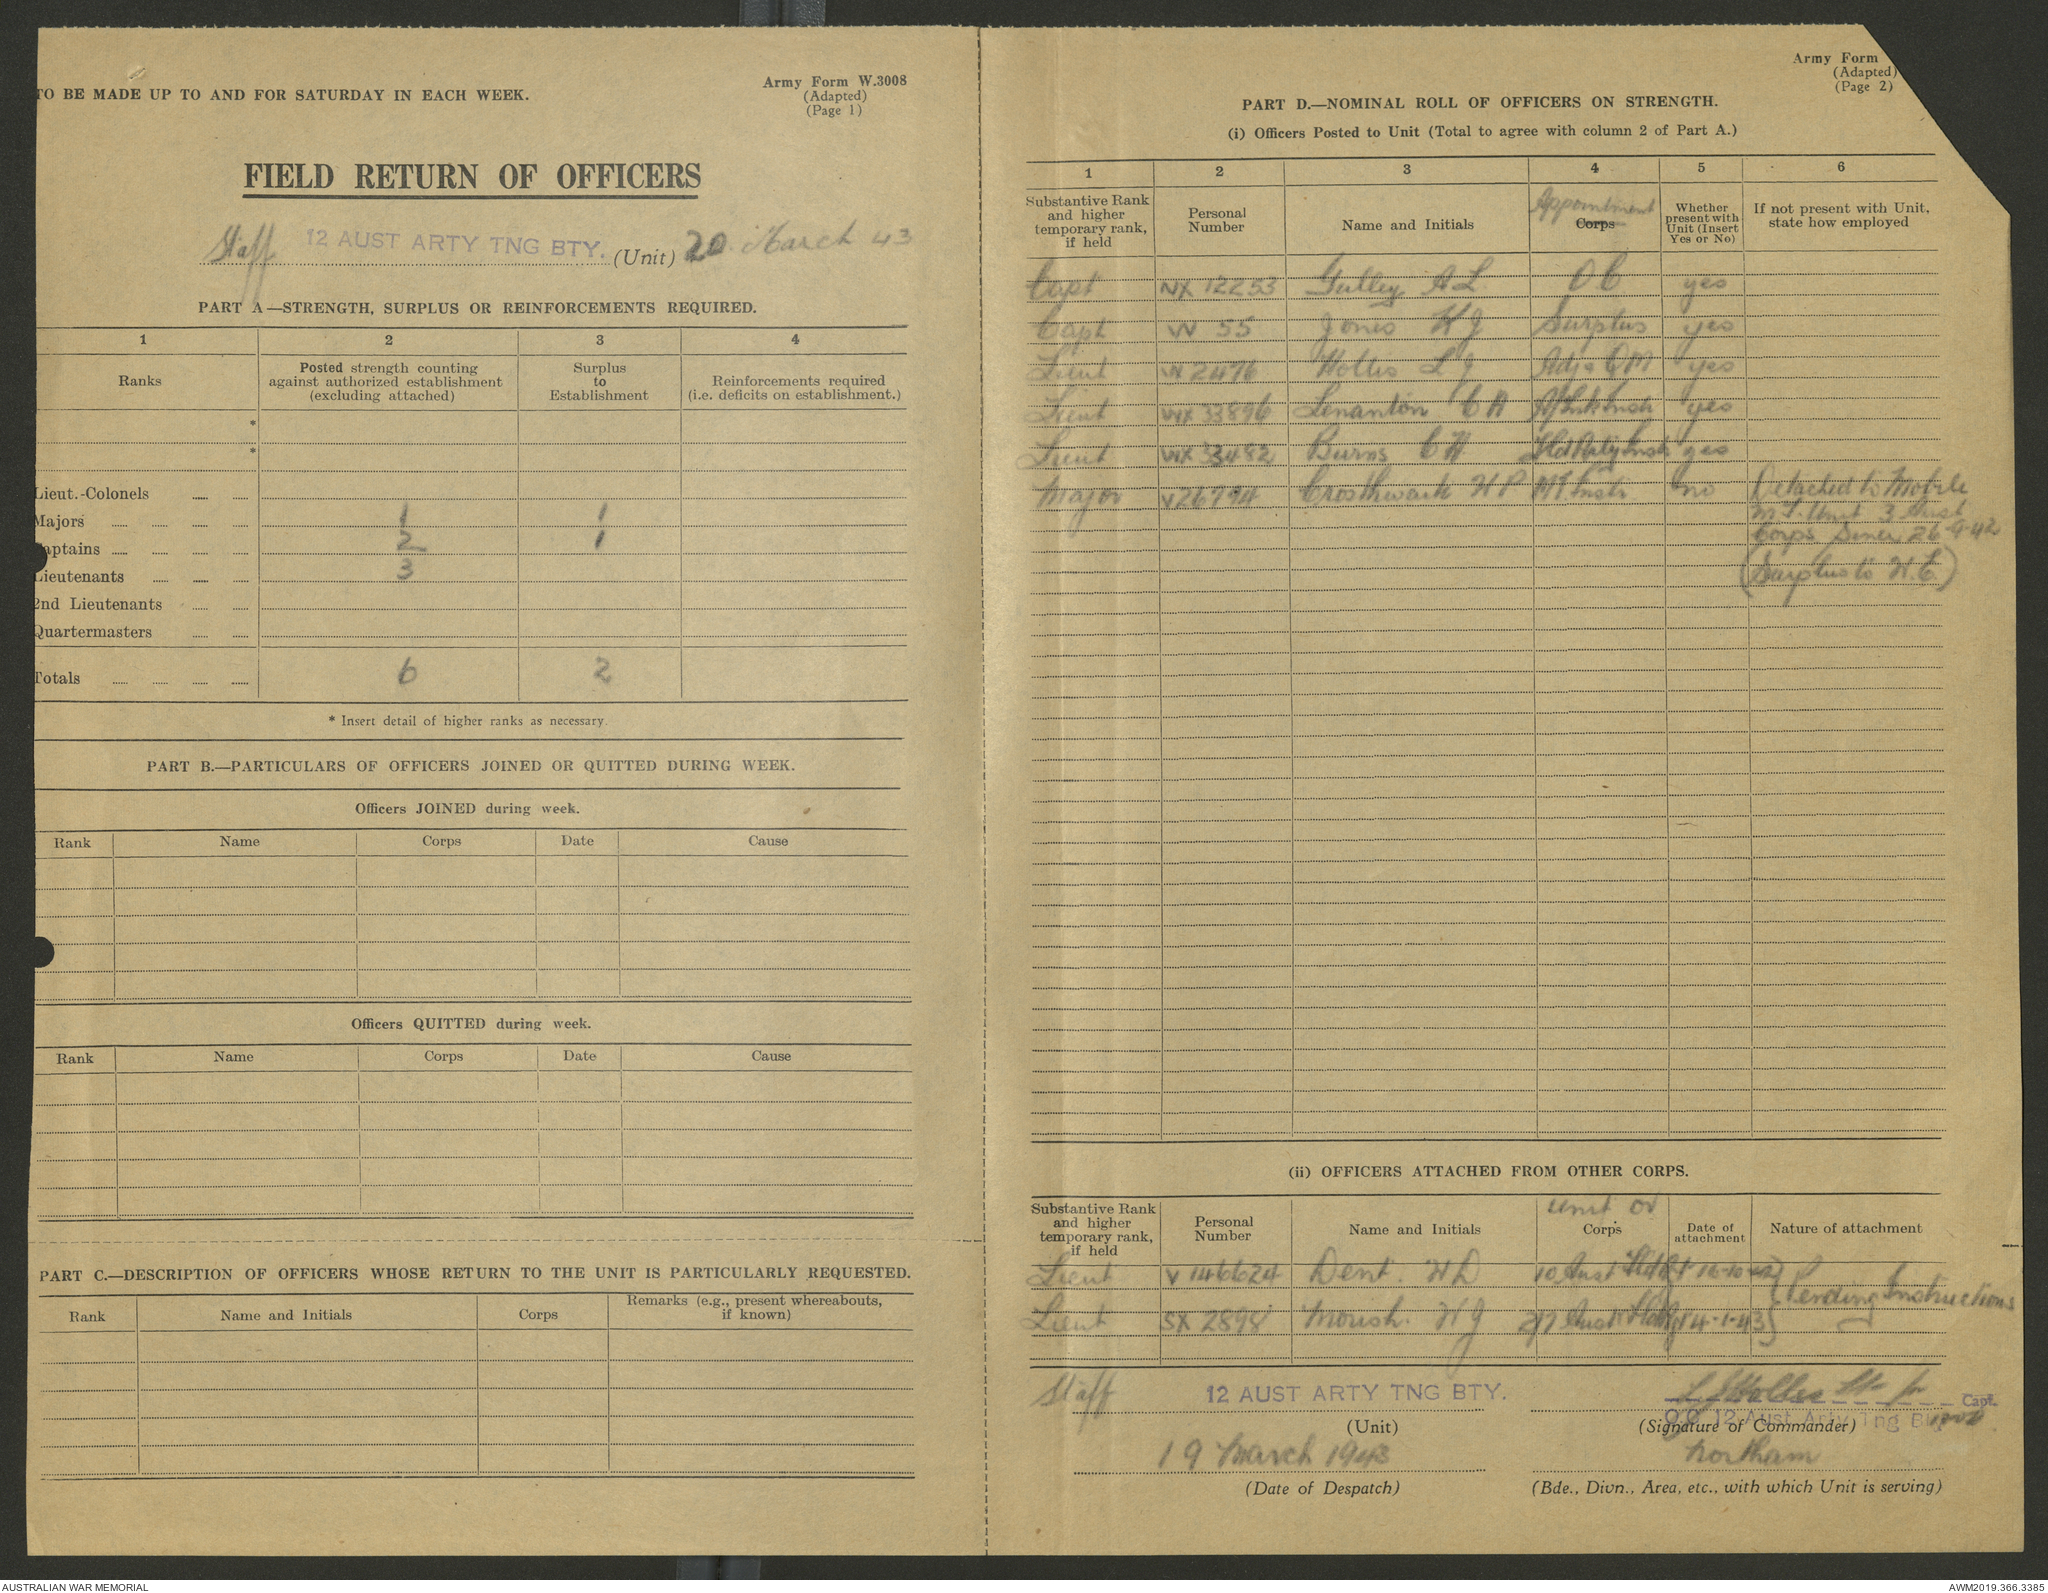 TO BE MADE UP TO AND FOR SATURDAY IN EACH WEEK.
Army Form W.3008
(Adapted)
(Page 1)
FIELD RETURN OF OFFICERS
Staff 12 AUST ARTY TNG BTY. (Unit) 20 March 43
PART A—STRENGTH, SURPLUS OR REINFORCEMENTS REQUIRED.
1 2 3 4
Ranks
Posted strength counting against authorized establishment (excluding attached)
Surplus to Establishment
Reinforcements required (i.e. deficits on establishment.)
*
*
Lieut.-Colonels
Majors 1 1
Captains 2 1
Lieutenants 3
2nd Lieutenants
Quartermasters
Totals 6 2
* Insert detail of higher ranks as necessary.
PART B.—PARTICULARS OF OFFICERS JOINED OR QUITTED DURING WEEK.
Officers JOINED during week.
Rank Name Corps Date Cause
Officers QUITTED during week.
Rank Name Corps Date Cause
PART C.—DESCRIPTION OF OFFICERS WHOSE RETURN TO THE UNIT IS PARTICULARLY REQUESTED.
Rank Name and Initials Corps Remarks (e.g., present whereabouts, if known)
Army Form
(Adapted)
(Page 2)
PART D.—NOMINAL ROLL OF OFFICERS ON STRENGTH.
(i) Officers Posted to Unit (Total to agree with column 2 of Part A.)
1 2 3 4 5 6
Substantive Rank and higher temporary rank, if held
Personal Number
Name and Initials
Appointment
Corps
Whether present with Unit (Insert Yes or No)
If not present with Unit, state how employed
Capt NX 12253 Gulley A L O C yes
Capt W 55 Jones H J Surplus yes
Lieut W 2476 Hollis L J Adj & QM yes
Lieut WX 33896 Lenanton C A yes
Lieut WX 33482 Burns C H yes
Major V 26794 Crosthwaite H P MT Instr no Detached to Mobile
M.T. Unit 3 Aust
Corps Since 26-9-42
(Surplus to W.E.)
(ii) OFFICERS ATTACHED FROM OTHER CORPS.
Substantive Rank and higher temporary rank, if held
Personal Number
Name and Initials
Unit or
Corps
Date of attachment
Nature of attachment
Lieut V 146624 Dent. H D 10 Aust 16-10-42
Pending Instructions
Lieut SX 2898 Morish. H J 2/7 Aust 14-1-43
Staff 12 AUST ARTY TNG BTY.
(Unit)
L J Hollis Lt for Capt.
O.C. 12 Aust Arty Tng Bty
(Signature of Commander)
19 March 1943
(Date of Despatch)
Northam
(Bde., Divn., Area, etc., with which Unit is serving)
AUSTRALIAN WAR MEMORIAL
AWM2019.366.3385